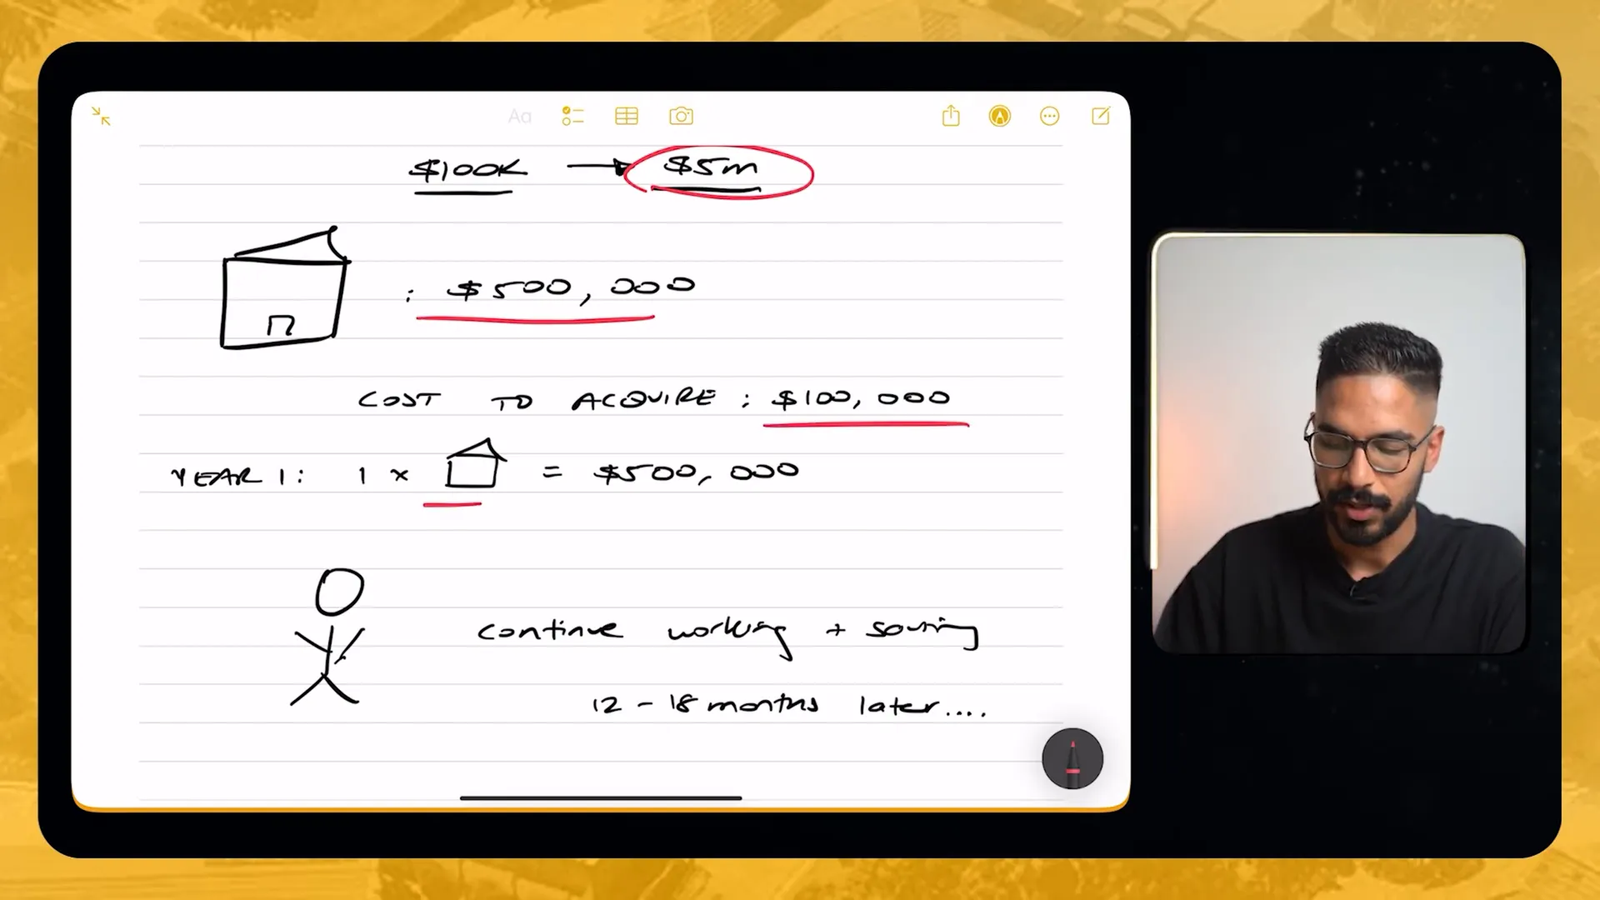 Aa
$100K → $5m
: $500,000
COST TO ACQUIRE : $100,000
YEAR 1: 1 × = $500,000
continue working + saving
12 - 18 months later....